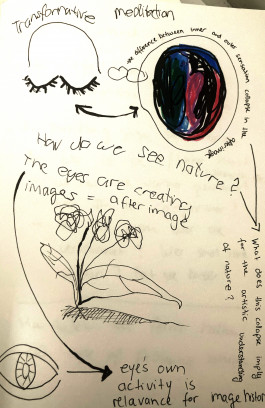 Transformative meditation
difference between inner and outer sensation collapse in the
afterimage
How do we see nature?
The eyes are creating
images = afterimage
What does this collapse imply
for the artistic understanding
of nature?
eye's own
activity is
relavance for image histor